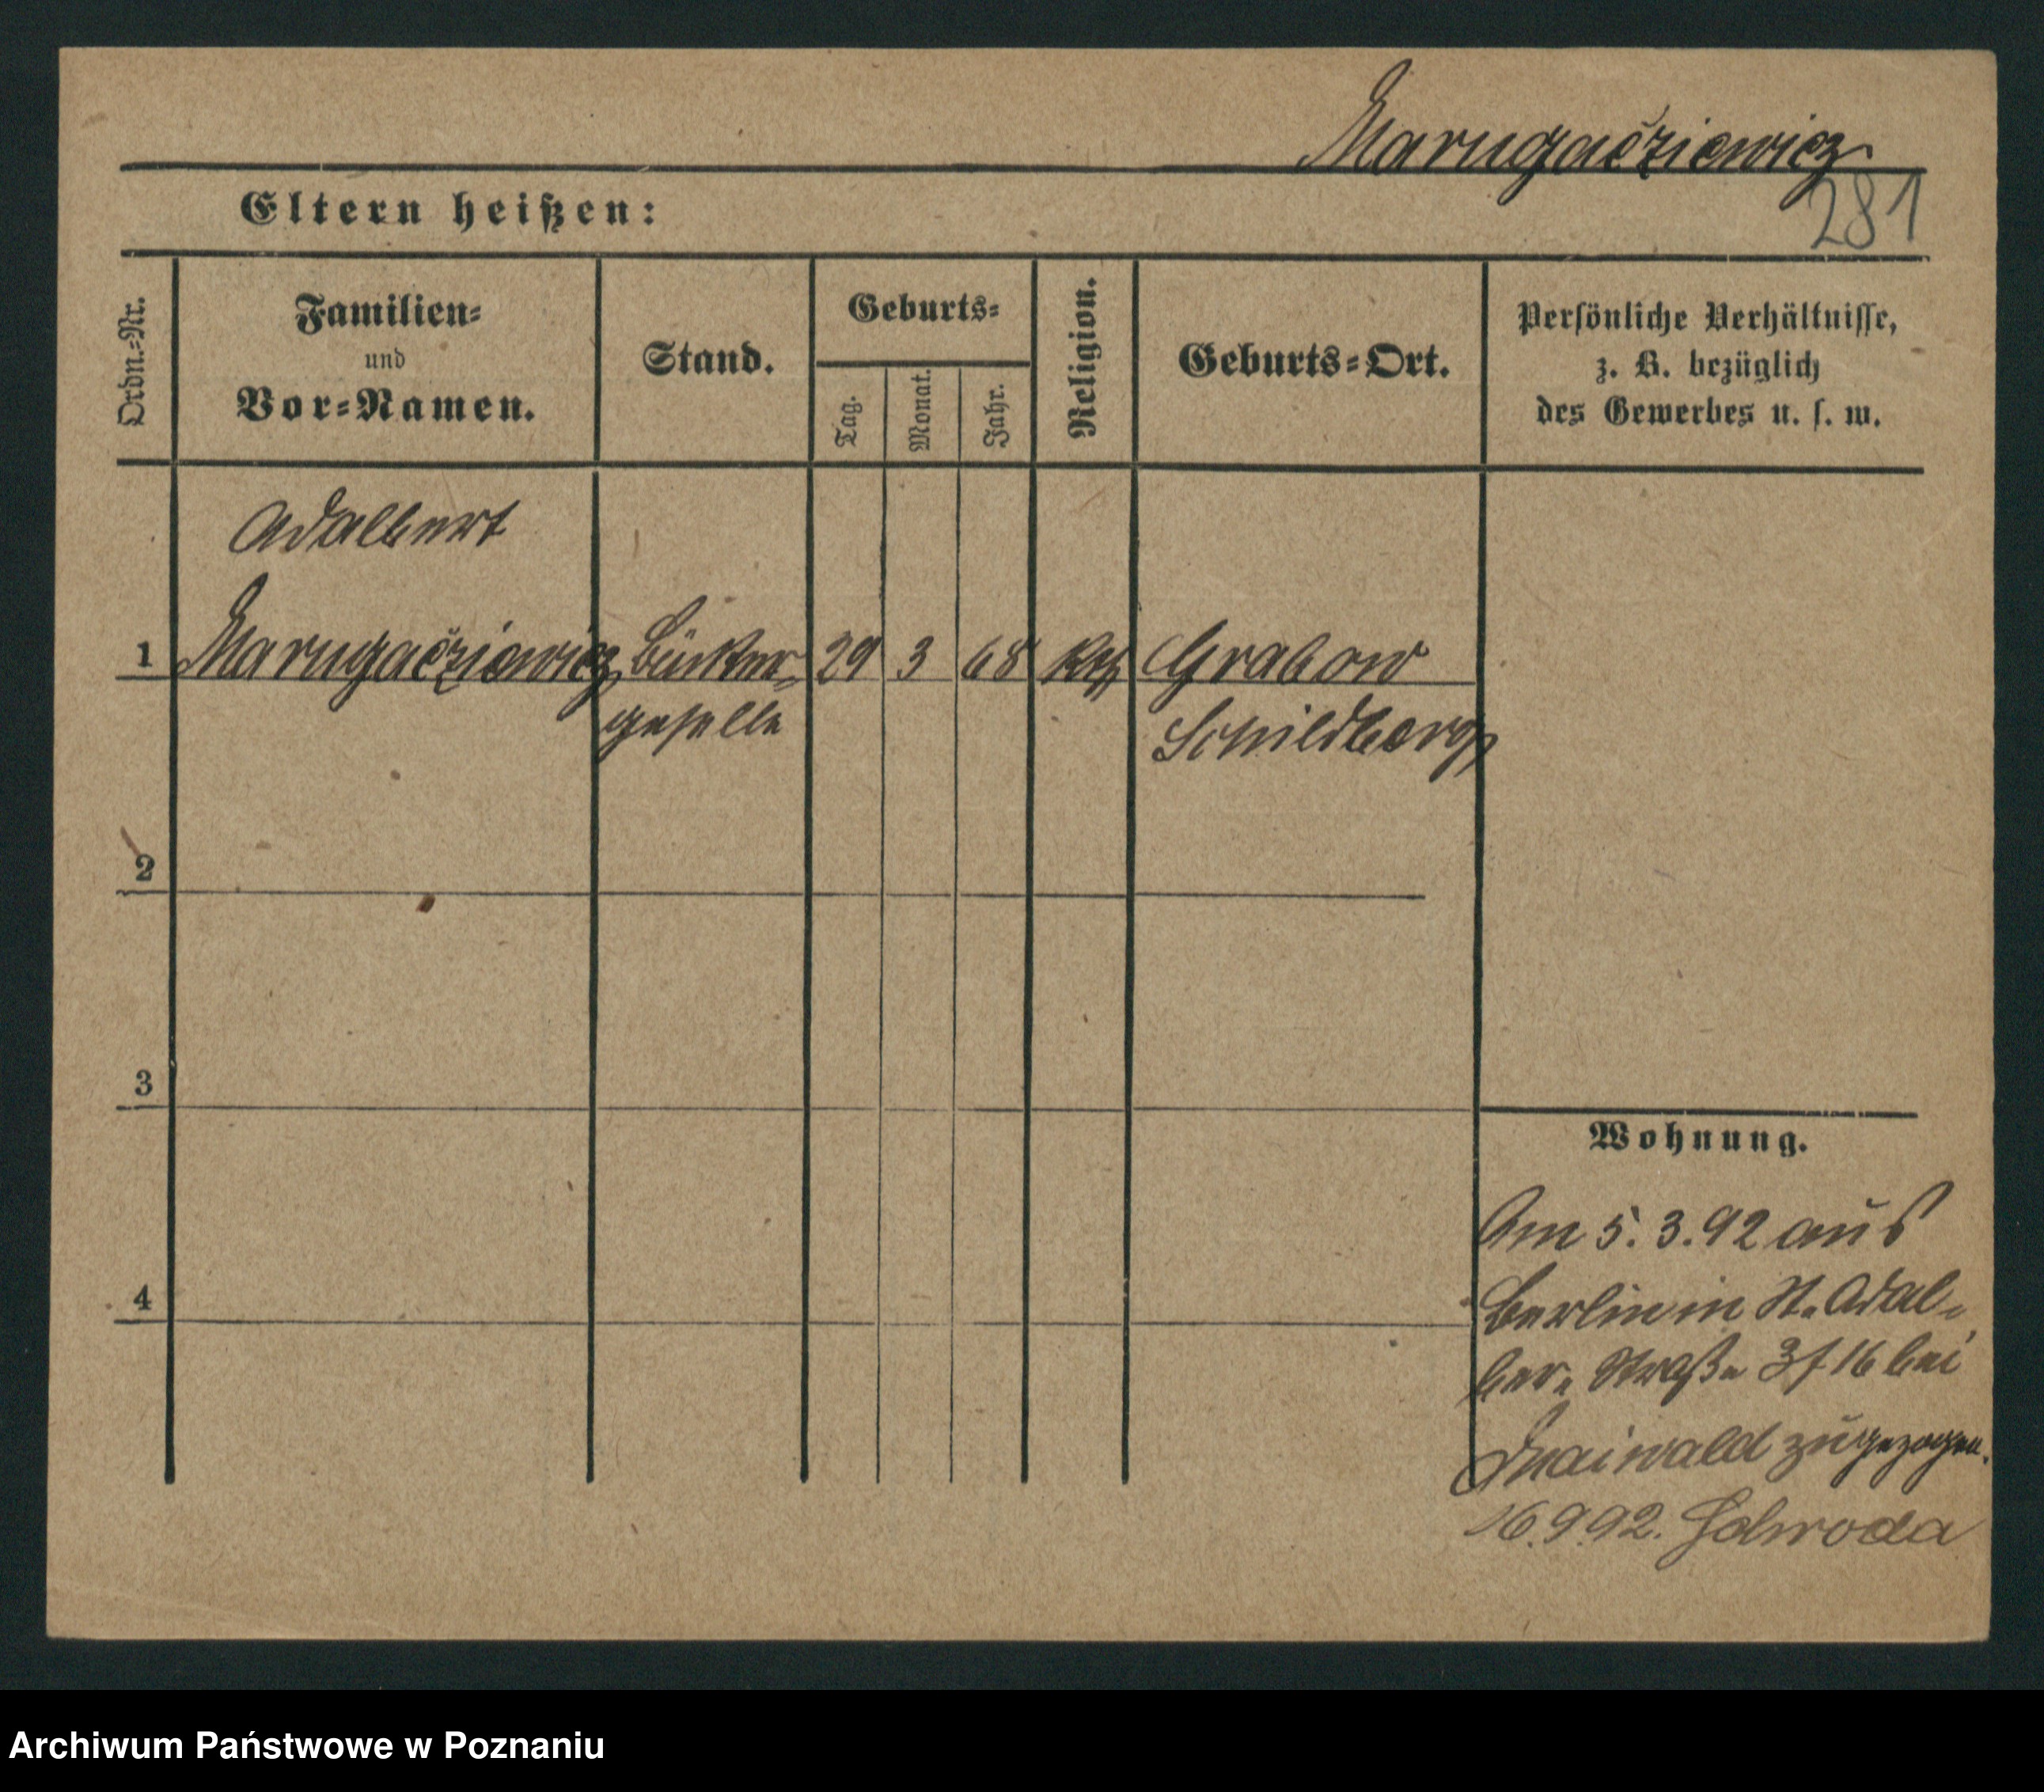 Marugačziewicz
281
Eltern heißen:
Ordn.-Nr.
Familien-
und
Vor-Namen.
Stand.
Geburts-
Tag.
Monat.
Jahr.
Religion.
Geburts-Ort.
Persönliche Verhältnisse,
z. B. bezüglich
des Gewerbes u. s. w.
Adalbert
1 Marugačziewicz Bäcker- 29 3 68 Kth Grabow
geselle Schildberg
2
3
4
Wohnung.
Am 5. 3. 92 aus
Berlin in St. Adal-
ber. Straße 3/16 bei
Maiwald zugezogen.
16.9.92.
Archiwum Państwowe w Poznaniu